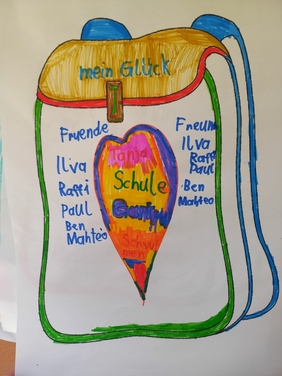 mein Glück
Fruende
Ilva
Raffi
Paul
Ben
Mahteo
Freun
Ilva
Raffi
Paul
Ben
Mahteo
Tanja
Schule